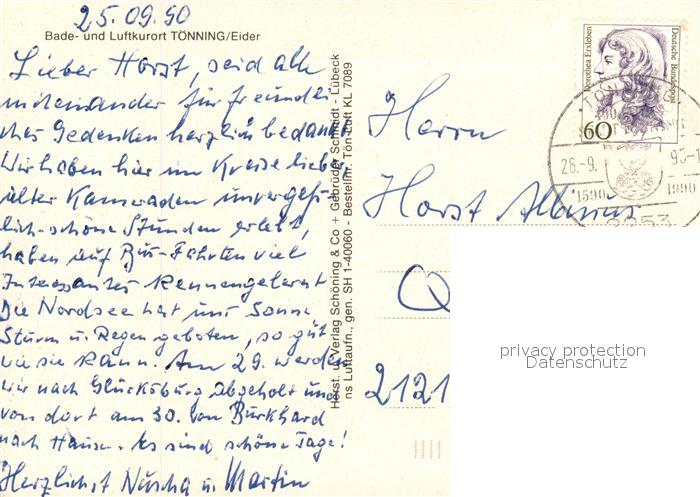 25.09.90
Bade- und Luftkurort TÖNNING/Eider
Lieber Horst, seid alle
miteinander für freundli
ches Gedenken herzlich bedankt
Wir haben hier im Kreise lieber
alter Kameraden unvergeß-
lich-schöne Stunden erlebt,
haben auf Bus-Fahrten viel
Interessantes kennengelernt
Die Nordsee hat uns Sonne
Sturm u. Regen geboten, so gut
wie sie kann. Am 29. werden
wir nach Glücksburg abgeholt und
von dort am 30. von Burkhard
nach Hause. Es sind schöne Tage!
Herzlichst u. Martin
Horst. u. Verlag Schöning & Co + Gebrüder Schmidt - Lübeck
ns Luftaufn., gen. SH 1-40060 - Bestellnr. Tön Luft KL 7089
Dorothea Erxleben
Deutsche Bundespost
60
TÖNNING
400
26.-9.
90-1
1590
1990
2253
Herrn
Horst
Q
2121
privacy protection
Datenschutz